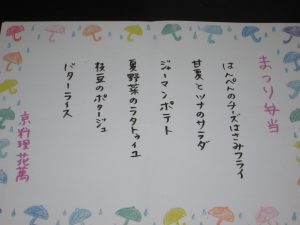 まつり弁当
はんぺんのチーズはさみフライ
甘夏とツナのサラダ
ジャーマンポテト
夏野菜のラタトゥイユ
枝豆のポタージュ
バターライス
京料理 花萬